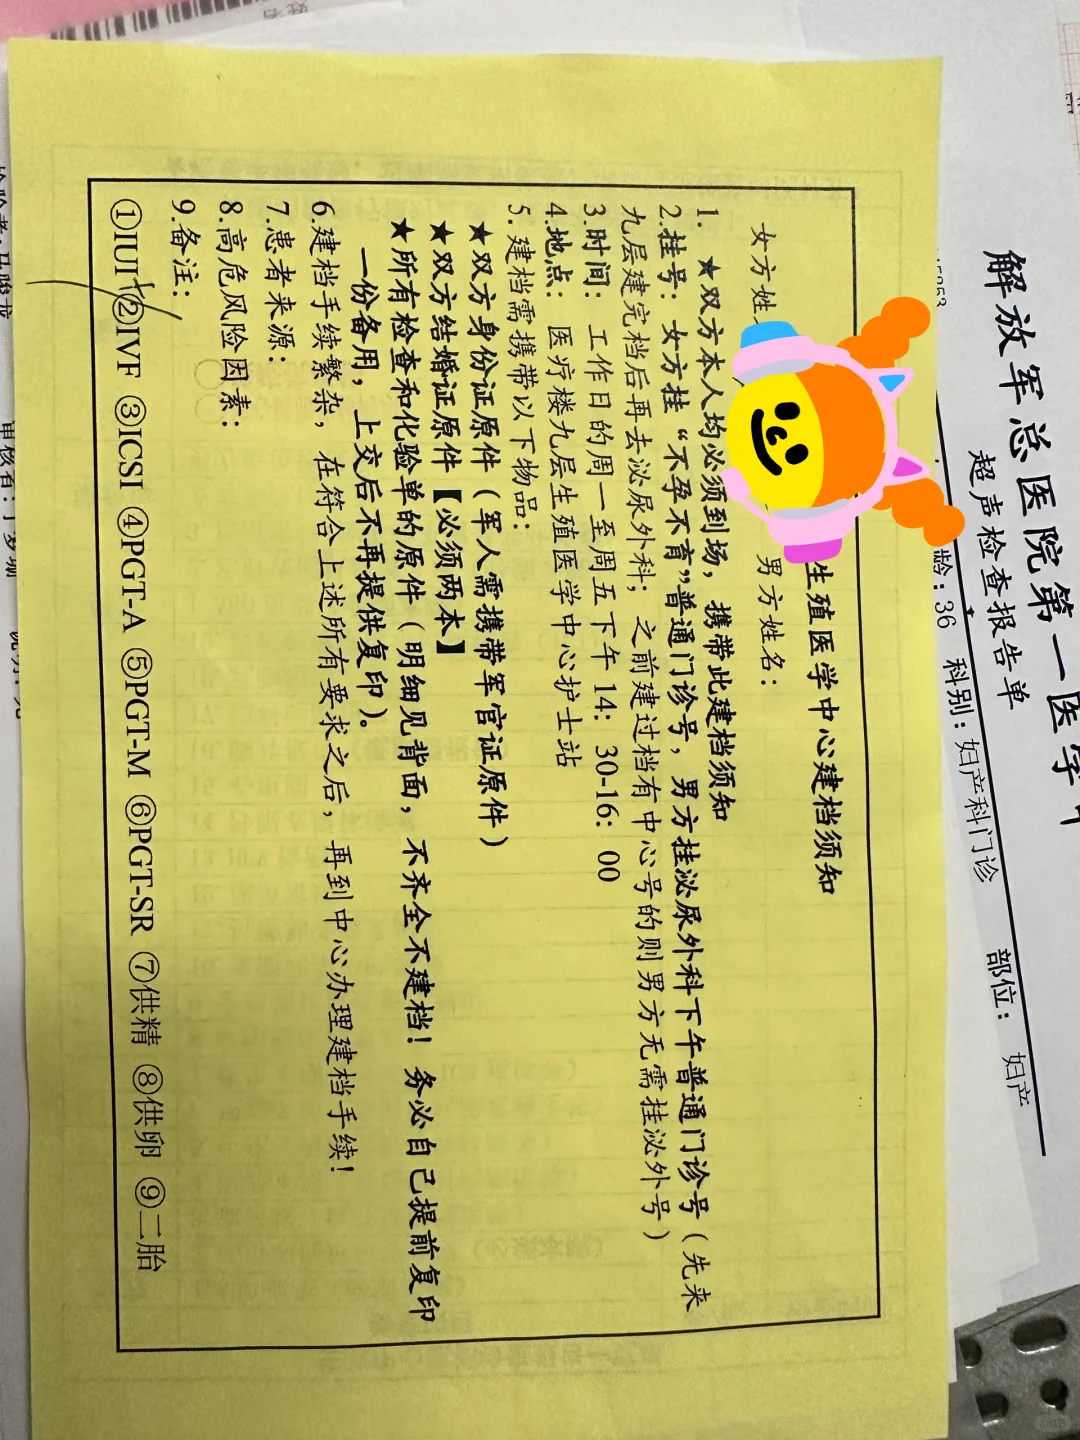 解放军总医院第一医学
超声检查报告单
龄：36 科别：妇产科门诊 部位： 妇产
生殖医学中心建档须知
女方姓 男方姓名：
1. ★双方本人均必须到场，携带此建档须知
2.挂号：女方挂“不孕不育”普通门诊号，男方挂泌尿外科下午普通门诊号（先来
九层建完档后再去泌尿外科；之前建过档有中心号的则男方无需挂泌外号）
3.时间： 工作日的周一至周五下午 14：30-16：00
4.地点： 医疗楼九层生殖医学中心护士站
5. 建档需携带以下物品：
★双方身份证原件（军人需携带军官证原件）
★双方结婚证原件【必须两本】
★所有检查和化验单的原件（明细见背面，不齐全不建档！务必自己提前复印
一份备用，上交后不再提供复印）。
6.建档手续繁杂，在符合上述所有要求之后，再到中心办理建档手续！
7.患者来源：
8.高危风险因素：
9.备注：
①IUI ②IVF ③ICSI ④PGT-A ⑤PGT-M ⑥PGT-SR ⑦供精 ⑧供卵 ⑨二胎